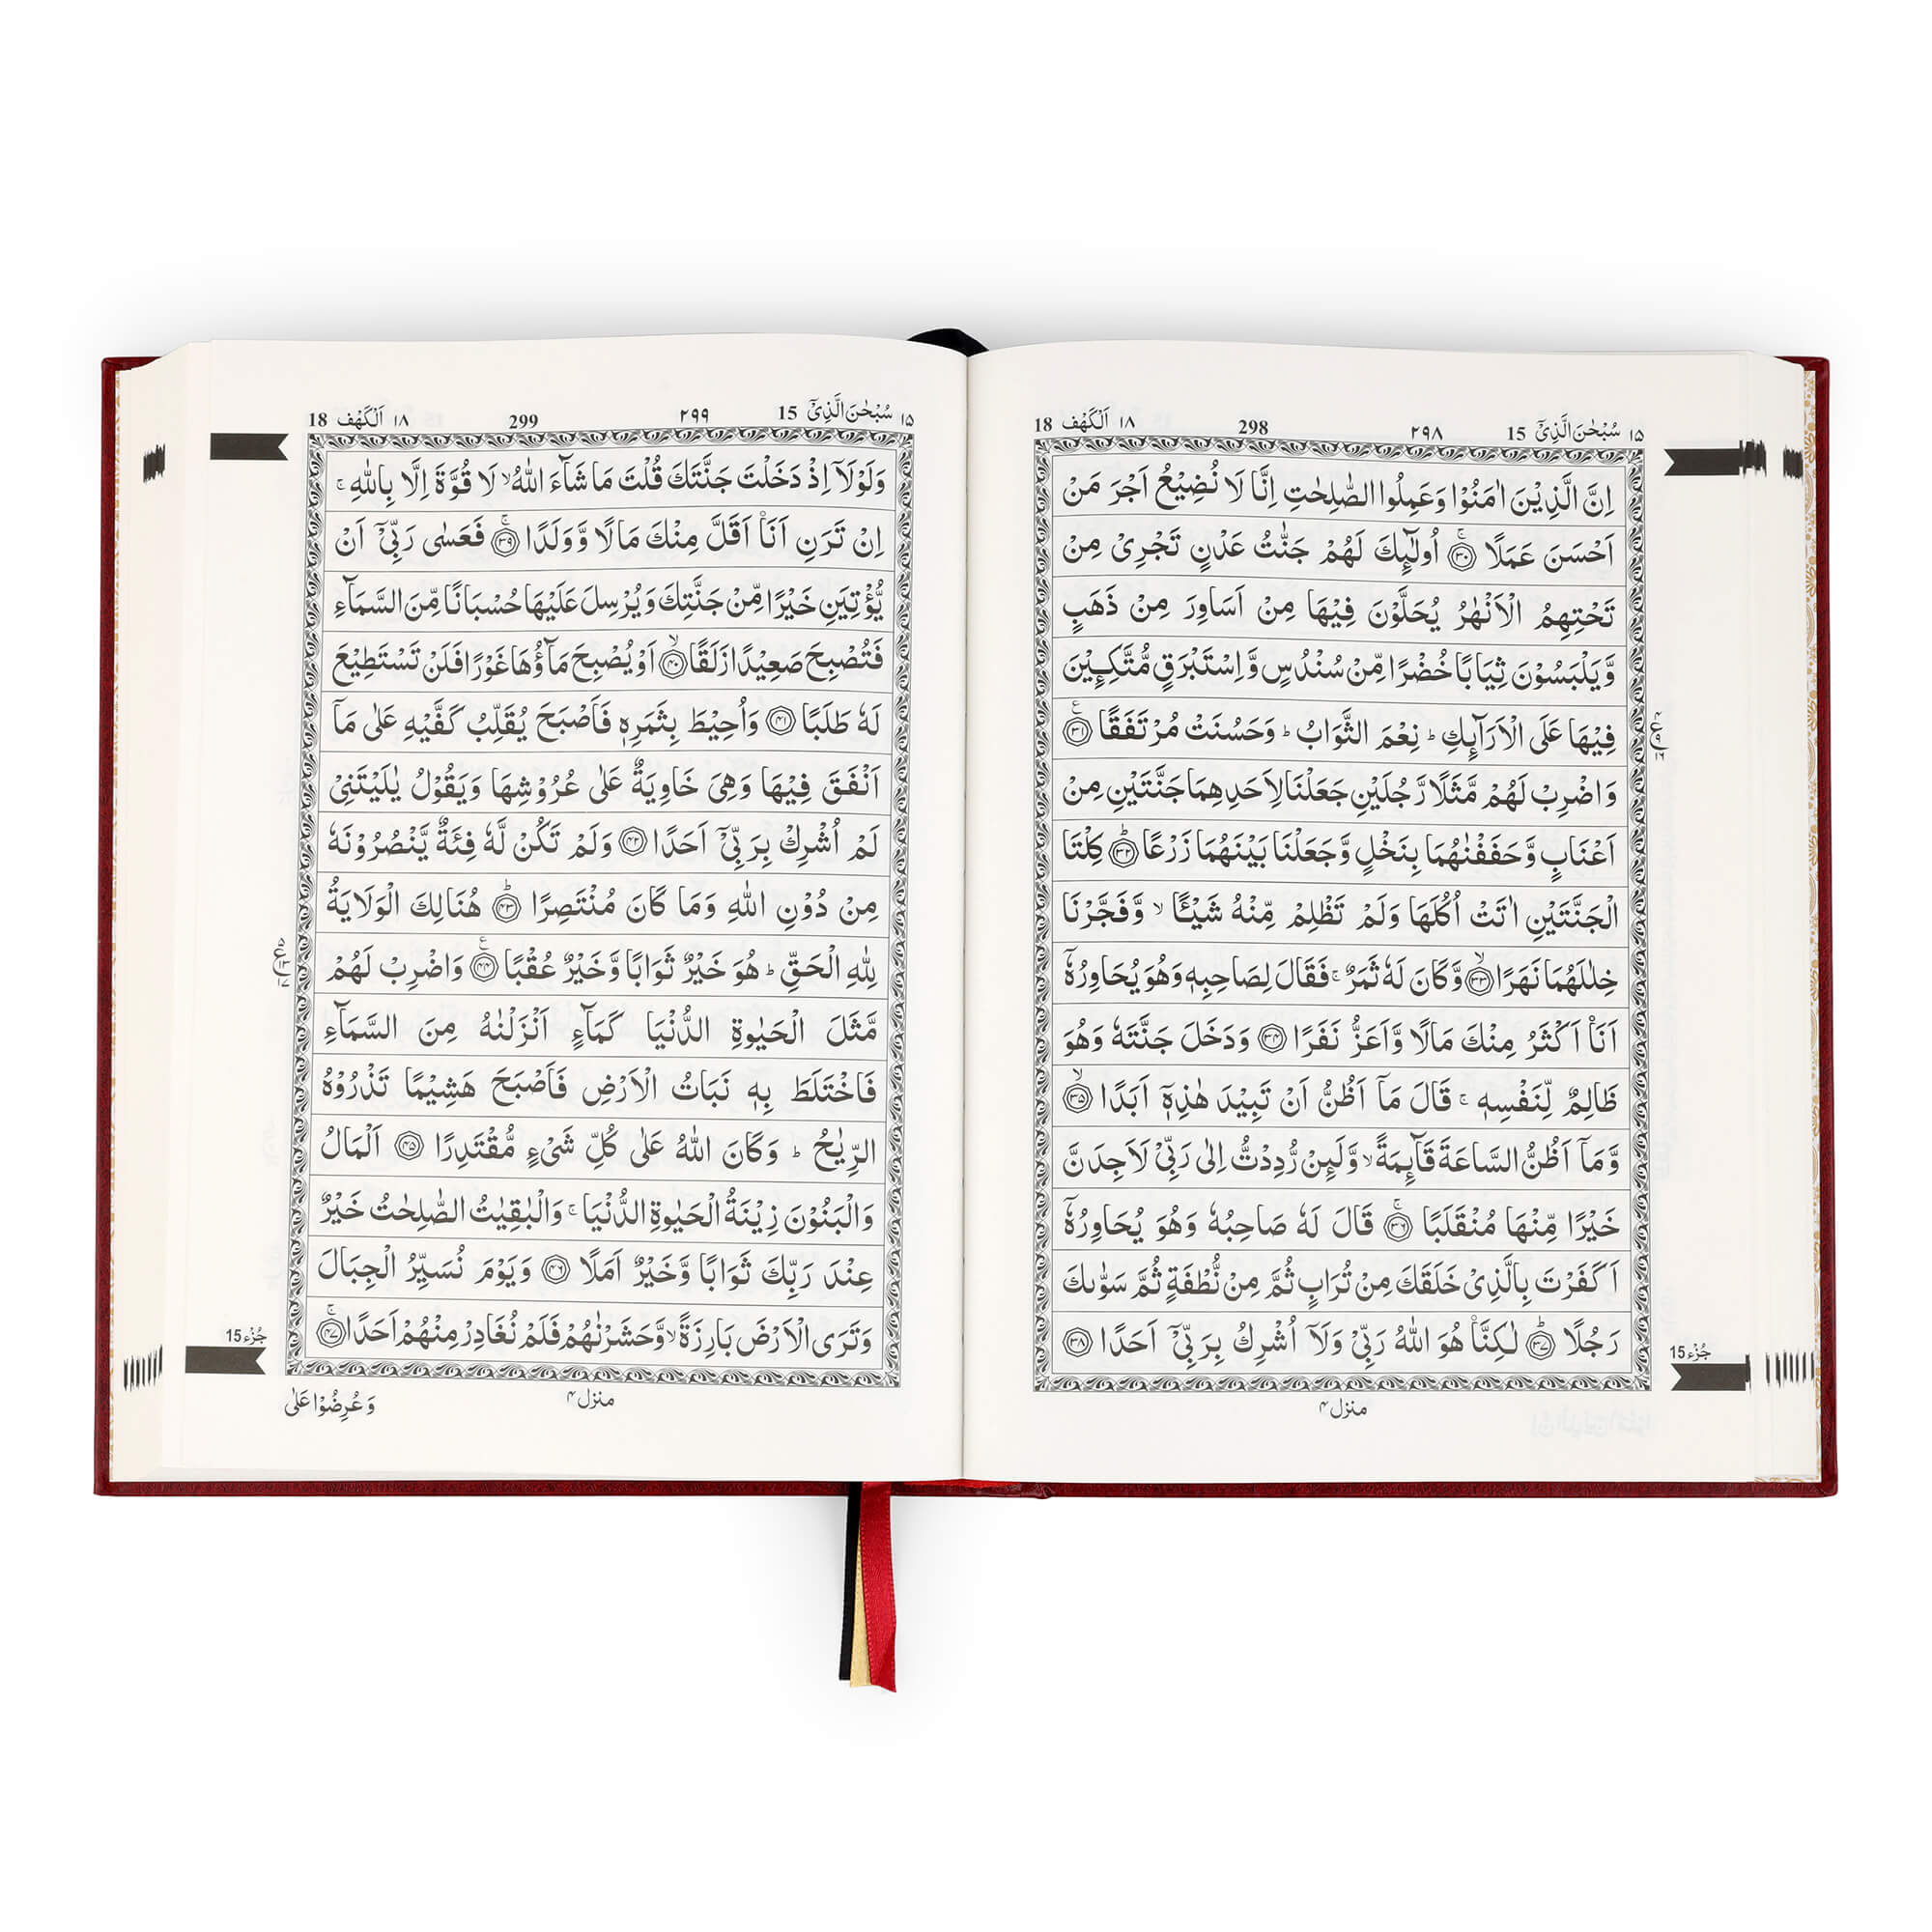 ١٥ سُبْحٰنَ الَّذِيْۤ 15 ٢٩٨ 298 ١٨ اَلْكَهْف 18
اِنَّ الَّذِيْنَ اٰمَنُوْا وَعَمِلُوا الصّٰلِحٰتِ اِنَّا لَا نُضِيْعُ اَجْرَ مَنْ
اَحْسَنَ عَمَلًا ۚ ﴿٣٠﴾ اُولٰٓئِكَ لَهُمْ جَنّٰتُ عَدْنٍ تَجْرِيْ مِنْ
تَحْتِهِمُ الْاَنْهٰرُ يُحَلَّوْنَ فِيْهَا مِنْ اَسَاوِرَ مِنْ ذَهَبٍ
وَّيَلْبَسُوْنَ ثِيَابًا خُضْرًا مِّنْ سُنْدُسٍ وَّاِسْتَبْرَقٍ مُّتَّكِـِٕيْنَ
فِيْهَا عَلَى الْاَرَآئِكِ ؕ نِعْمَ الثَّوَابُ ؕ وَحَسُنَتْ مُرْتَفَقًا ﴿٣١﴾
وَاضْرِبْ لَهُمْ مَّثَلًا رَّجُلَيْنِ جَعَلْنَا لِاَحَدِهِمَا جَنَّتَيْنِ مِنْ
اَعْنَابٍ وَّحَفَفْنٰهُمَا بِنَخْلٍ وَّجَعَلْنَا بَيْنَهُمَا زَرْعًا ؕ ﴿٣٢﴾ كِلْتَا
الْجَنَّتَيْنِ اٰتَتْ اُكُلَهَا وَلَمْ تَظْلِمْ مِّنْهُ شَيْـًٔا ۙ وَّفَجَّرْنَا
خِلٰلَهُمَا نَهَرًا ۙ ﴿٣٣﴾ وَّكَانَ لَهٗ ثَمَرٌ ۚ فَقَالَ لِصَاحِبِهٖ وَهُوَ يُحَاوِرُهٗۤ
اَنَا۠ اَكْثَرُ مِنْكَ مَالًا وَّاَعَزُّ نَفَرًا ﴿٣٤﴾ وَدَخَلَ جَنَّتَهٗ وَهُوَ
ظَالِمٌ لِّنَفْسِهٖ ۚ قَالَ مَاۤ اَظُنُّ اَنْ تَبِيْدَ هٰذِهٖۤ اَبَدًا ۙ ﴿٣٥﴾
وَّمَاۤ اَظُنُّ السَّاعَةَ قَآئِمَةً ۙ وَّلَئِنْ رُّدِدْتُّ اِلٰى رَبِّيْ لَاَجِدَنَّ
خَيْرًا مِّنْهَا مُنْقَلَبًا ۚ ﴿٣٦﴾ قَالَ لَهٗ صَاحِبُهٗ وَهُوَ يُحَاوِرُهٗۤ
اَكَفَرْتَ بِالَّذِيْ خَلَقَكَ مِنْ تُرَابٍ ثُمَّ مِنْ نُّطْفَةٍ ثُمَّ سَوّٰىكَ
رَجُلًا ؕ ﴿٣٧﴾ لٰكِنَّا۠ هُوَ اللّٰهُ رَبِّيْ وَلَاۤ اُشْرِكُ بِرَبِّيْۤ اَحَدًا ﴿٣٨﴾
جُزْء 15
منزل ٤
١٥ سُبْحٰنَ الَّذِيْۤ 15 ٢٩٩ 299 ١٨ اَلْكَهْف 18
وَلَوْلَاۤ اِذْ دَخَلْتَ جَنَّتَكَ قُلْتَ مَا شَآءَ اللّٰهُ ۙ لَا قُوَّةَ اِلَّا بِاللّٰهِ ۚ
اِنْ تَرَنِ اَنَا۠ اَقَلَّ مِنْكَ مَالًا وَّوَلَدًا ۚ ﴿٣٩﴾ فَعَسٰى رَبِّيْۤ اَنْ
يُّؤْتِيَنِ خَيْرًا مِّنْ جَنَّتِكَ وَيُرْسِلَ عَلَيْهَا حُسْبَانًا مِّنَ السَّمَآءِ
فَتُصْبِحَ صَعِيْدًا زَلَقًا ۙ ﴿٤٠﴾ اَوْ يُصْبِحَ مَآؤُهَا غَوْرًا فَلَنْ تَسْتَطِيْعَ
لَهٗ طَلَبًا ﴿٤١﴾ وَاُحِيْطَ بِثَمَرِهٖ فَاَصْبَحَ يُقَلِّبُ كَفَّيْهِ عَلٰى مَاۤ
اَنْفَقَ فِيْهَا وَهِيَ خَاوِيَةٌ عَلٰى عُرُوْشِهَا وَيَقُوْلُ يٰلَيْتَنِيْ
لَمْ اُشْرِكْ بِرَبِّيْۤ اَحَدًا ﴿٤٢﴾ وَلَمْ تَكُنْ لَّهٗ فِئَةٌ يَّنْصُرُوْنَهٗ
مِنْ دُوْنِ اللّٰهِ وَمَا كَانَ مُنْتَصِرًا ؕ ﴿٤٣﴾ هُنَالِكَ الْوَلَايَةُ
لِلّٰهِ الْحَقِّ ؕ هُوَ خَيْرٌ ثَوَابًا وَّخَيْرٌ عُقْبًا ﴿٤٤﴾ وَاضْرِبْ لَهُمْ
مَّثَلَ الْحَيٰوةِ الدُّنْيَا كَمَآءٍ اَنْزَلْنٰهُ مِنَ السَّمَآءِ
فَاخْتَلَطَ بِهٖ نَبَاتُ الْاَرْضِ فَاَصْبَحَ هَشِيْمًا تَذْرُوْهُ
الرِّيٰحُ ؕ وَكَانَ اللّٰهُ عَلٰى كُلِّ شَيْءٍ مُّقْتَدِرًا ﴿٤٥﴾ اَلْمَالُ
وَالْبَنُوْنَ زِيْنَةُ الْحَيٰوةِ الدُّنْيَا ۚ وَالْبٰقِيٰتُ الصّٰلِحٰتُ خَيْرٌ
عِنْدَ رَبِّكَ ثَوَابًا وَّخَيْرٌ اَمَلًا ﴿٤٦﴾ وَيَوْمَ نُسَيِّرُ الْجِبَالَ
وَتَرَى الْاَرْضَ بَارِزَةً ۙ وَّحَشَرْنٰهُمْ فَلَمْ نُغَادِرْ مِنْهُمْ اَحَدًا ۚ ﴿٤٧﴾
جُزْء 15
منزل ٤
وَعُرِضُوْا عَلٰى